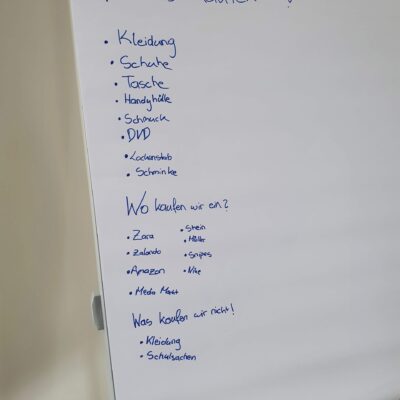 • Kleidung
• Schuhe
• Tasche
• Handyhülle
• Schmuck
• DVD
• Lockenstab
• Schminke
Wo kaufen wir ein?
• Zara
• Zalando
• Amazon
• Media Markt
• Shein
• Müller
• Snipes
• Nike
Was kaufen wir nicht!
• Kleidung
• Schulsachen